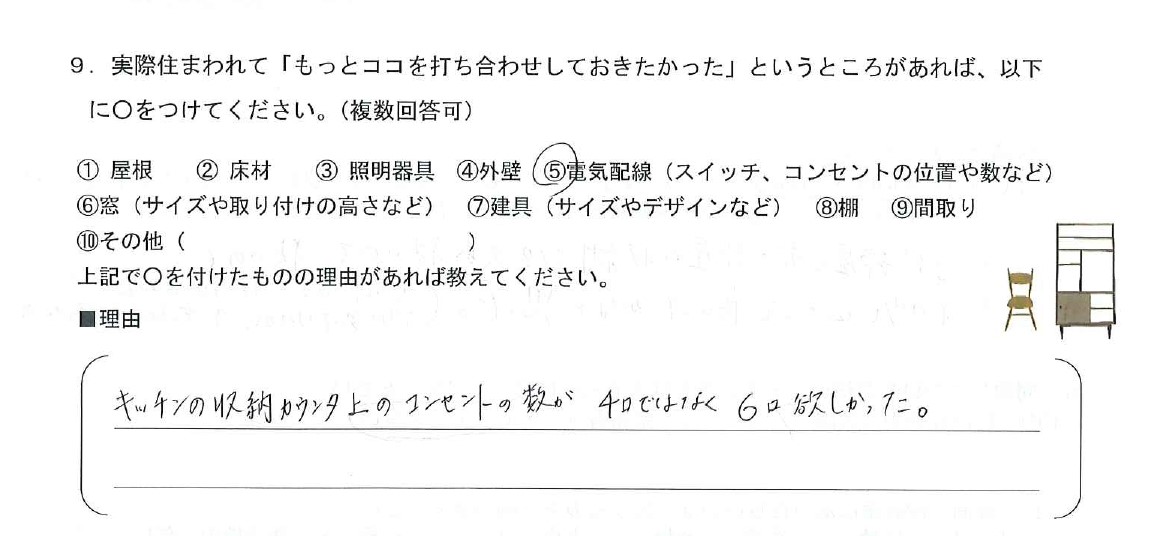 9．実際住まわれて「もっとココを打ち合わせしておきたかった」というところがあれば、以下
に〇をつけてください。（複数回答可）
① 屋根　② 床材　③ 照明器具　④外壁　⑤電気配線（スイッチ、コンセントの位置や数など）
⑥窓（サイズや取り付けの高さなど）　⑦建具（サイズやデザインなど）　⑧棚　⑨間取り
⑩その他（　　　　　　　　　　　　）
上記で〇を付けたものの理由があれば教えてください。
■理由
キッチンの収納カウンタ上のコンセントの数が 4口ではなく 6口欲しかった。